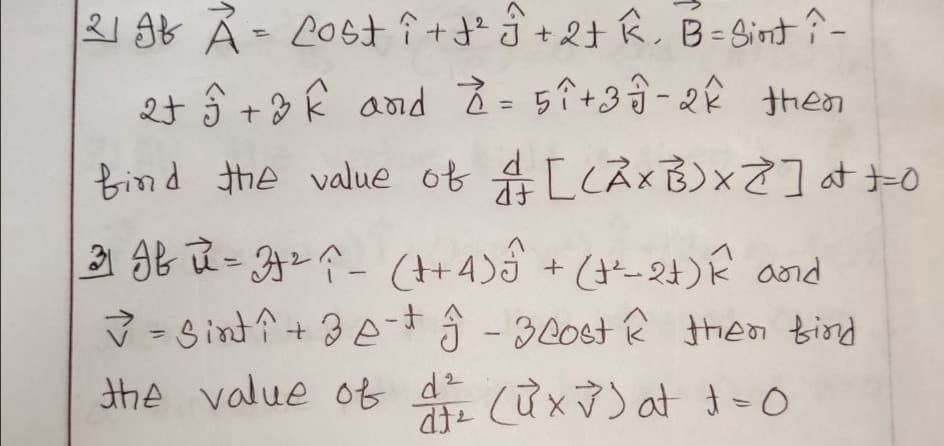 2) If A⃗ = cost î + t² ĵ + 2t k̂. B⃗ = Sint î -
2t ĵ + 3 k̂ and C⃗ = 5î + 3ĵ - 2k̂ then
find the value of d/dt [(A⃗ x B⃗) x C⃗] at t=0
3) If u⃗ = 3t² î - (t+4)ĵ + (t²-2t)k̂ and
v⃗ = Sint î + 3e⁻ᵗ ĵ - 3cost k̂ then find
the value of d²/dt² (u⃗ x v⃗) at t = 0